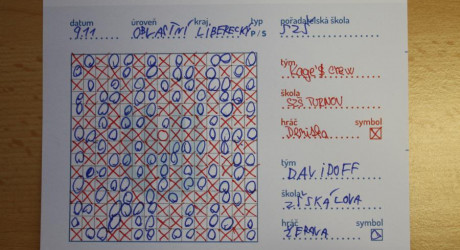 datum úroveň kraj typ pořadatelská škola
9.11 OBLASTNÍ LIBERECKÝ P / S SZŠ
tým
Kage's crew
škola
SZŠ TURNOV
hráč symbol
Deniska
tým
DAVIDOFF
škola
ZŠ SKÁLOVA
hráč symbol